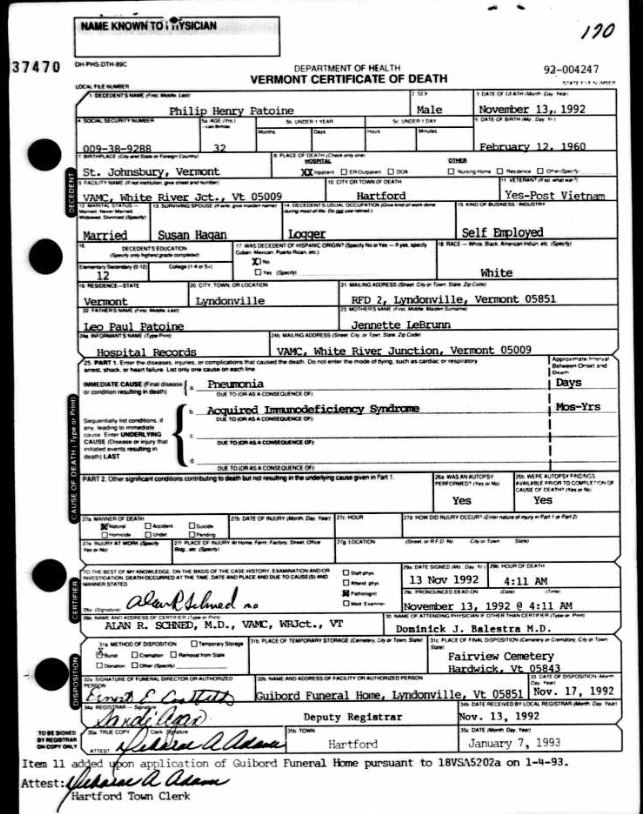 NAME KNOWN TO PHYSICIAN
170
37470
DH-PHS-DTH-89C
DEPARTMENT OF HEALTH
VERMONT CERTIFICATE OF DEATH
92-004247
LOCAL FILE NUMBER
STATE FILE NUMBER
1 DECEDENT'S NAME (First, Middle, Last)
2 SEX
3 DATE OF DEATH (Month, Day, Year)
Philip Henry Patoine
Male
November 13, 1992
4 SOCIAL SECURITY NUMBER
5a AGE (Yrs.)
5b UNDER 1 YEAR
5c UNDER 1 DAY
6 DATE OF BIRTH (Mo., Day, Yr.)
Months
Days
Hours
Minutes
009-38-9288
32
February 12, 1960
7 BIRTHPLACE (City and State or Foreign Country)
8 PLACE OF DEATH (Check only one)
HOSPITAL
OTHER
St. Johnsbury, Vermont
XX Inpatient
ER/Outpatient
DOA
Nursing Home
Residence
Other (Specify)
9 FACILITY NAME (If not institution, give street and number)
10 CITY OR TOWN OF DEATH
11 VETERAN? (If so, what war?)
VAMC, White River Jct., Vt 05009
Hartford
Yes-Post Vietnam
12 MARITAL STATUS
13 SURVIVING SPOUSE (If wife, give maiden name)
14 DECEDENT'S USUAL OCCUPATION (Give kind of work done during most of life. Do not use retired.)
15 KIND OF BUSINESS / INDUSTRY
Married
Susan Hagan
Logger
Self Employed
16 DECEDENT'S EDUCATION
(Specify only highest grade completed)
17 WAS DECEDENT OF HISPANIC ORIGIN? (Specify No or Yes — If yes, specify Cuban, Mexican, Puerto Rican, etc.)
18 RACE — White, Black, American Indian, etc. (Specify)
X No
Elementary/Secondary (0-12)
College (1-4 or 5+)
Yes (Specify)
12
White
19 RESIDENCE—STATE
20 CITY, TOWN, OR LOCATION
21 MAILING ADDRESS (Street, City or Town, State, Zip Code)
Vermont
Lyndonville
RFD 2, Lyndonville, Vermont 05851
22 FATHER'S NAME (First, Middle, Last)
23 MOTHER'S NAME (First, Middle, Maiden Surname)
Leo Paul Patoine
Jennette LeBrunn
24a INFORMANT'S NAME (Type/Print)
24b MAILING ADDRESS (Street, City, or Town, State, Zip Code)
Hospital Records
VAMC, White River Junction, Vermont 05009
25. PART 1. Enter the diseases, injuries, or complications that caused the death. Do not enter the mode of dying, such as cardiac or respiratory arrest, shock, or heart failure. List only one cause on each line
Approximate Interval Between Onset and Death
IMMEDIATE CAUSE (Final disease or condition resulting in death)
a. Pneumonia
Days
DUE TO (OR AS A CONSEQUENCE OF):
b. Acquired Immunodeficiency Syndrome
Mos-Yrs
DUE TO (OR AS A CONSEQUENCE OF):
Sequentially list conditions, if any, leading to immediate cause. Enter UNDERLYING CAUSE (Disease or injury that initiated events resulting in death) LAST
c.
DUE TO (OR AS A CONSEQUENCE OF):
d.
DUE TO (OR AS A CONSEQUENCE OF):
PART 2. Other significant conditions contributing to death but not resulting in the underlying cause given in Part 1.
26a WAS AN AUTOPSY PERFORMED? (Yes or No)
26b WERE AUTOPSY FINDINGS AVAILABLE PRIOR TO COMPLETION OF CAUSE OF DEATH? (Yes or No)
Yes
Yes
27a MANNER OF DEATH
27b DATE OF INJURY (Month, Day, Year)
27c HOUR
27d HOW DID INJURY OCCUR?
Natural
Accident
Suicide
Homicide
Undet.
Pending
27e INJURY AT WORK (Specify Yes or No)
27f PLACE OF INJURY At Home, Farm, Factory, Street, Office Bldg., etc. (Specify)
27g LOCATION
(Street, or R.F.D. No.
City or Town
State)
TO THE BEST OF MY KNOWLEDGE, ON THE BASIS OF THE CASE HISTORY, EXAMINATION AND/OR INVESTIGATION, DEATH OCCURRED AT THE TIME, DATE AND PLACE AND DUE TO CAUSE(S) AND MANNER STATED
Staff phys.
Attend. phys.
Pathologist
Med. Examiner
29a DATE SIGNED (Mo., Day, Yr.)
29b HOUR OF DEATH
13 Nov 1992
4:11 AM
28a (Signature)
Alan R Schned MD
29c PRONOUNCED DEAD ON
(Date)
(Time)
November 13, 1992 @ 4:11 AM
28b NAME AND ADDRESS OF CERTIFIER (Type or Print)
30 NAME OF ATTENDING PHYSICIAN IF OTHER THAN CERTIFIER (Type or Print)
ALAN R. SCHNED, M.D., VAMC, WRJct., VT
Dominick J. Balestra M.D.
31a METHOD OF DISPOSITION
Temporary Storage
31b PLACE OF TEMPORARY STORAGE (Cemetery, City or Town, State)
31c PLACE OF FINAL DISPOSITION (Cemetery or Crematory, City or Town, State)
Burial
Cremation
Removal from State
Donation
Other (Specify)
Fairview Cemetery
Hardwick, Vt 05843
32a SIGNATURE OF FUNERAL DIRECTOR OR AUTHORIZED PERSON
32b NAME AND ADDRESS OF FACILITY OR AUTHORIZED PERSON
33 DATE OF DISPOSITION (Month, Day, Year)
Guibord Funeral Home, Lyndonville, Vt 05851
Nov. 17, 1992
34a REGISTRAR — Signature
34b DATE RECEIVED BY LOCAL REGISTRAR (Month, Day, Year)
Deputy Registrar
Nov. 13, 1992
TO BE SIGNED BY REGISTRAR ON COPY ONLY
35a TRUE COPY
Clerk Signature
35b TOWN
35c DATE (Month, Day, Year)
ATTEST
Hartford
January 7, 1993
DECEDENT
CAUSE OF DEATH (Type or Print)
CERTIFIER
DISPOSITION
Item 11 added upon application of Guibord Funeral Home pursuant to 18VSA5202a on 1-4-93.
Attest: Deborah A Adams
Hartford Town Clerk